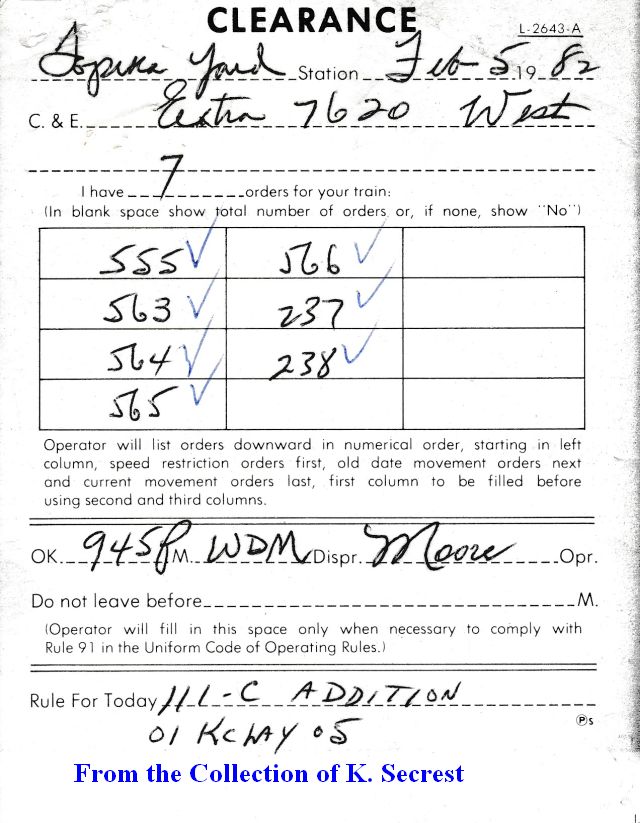 CLEARANCE
L-2643-A
Topeka Yard Station Feb 5 19 82
C. & E. Extra 7620 West
I have 7 orders for your train:
(In blank space show total number of orders or, if none, show "No")
555✓ 566✓
563✓ 237✓
564✓ 238✓
565✓
Operator will list orders downward in numerical order, starting in left
column, speed restriction orders first, old date movement orders next
and current movement orders last, first column to be filled before
using second and third columns.
OK. 945P M. WDM Dispr. Moore Opr.
Do not leave before M.
(Operator will fill in this space only when necessary to comply with
Rule 91 in the Uniform Code of Operating Rules.)
Rule For Today 111-C ADDITION
01 KCLAY 05
Ⓟs
From the Collection of K. Secrest